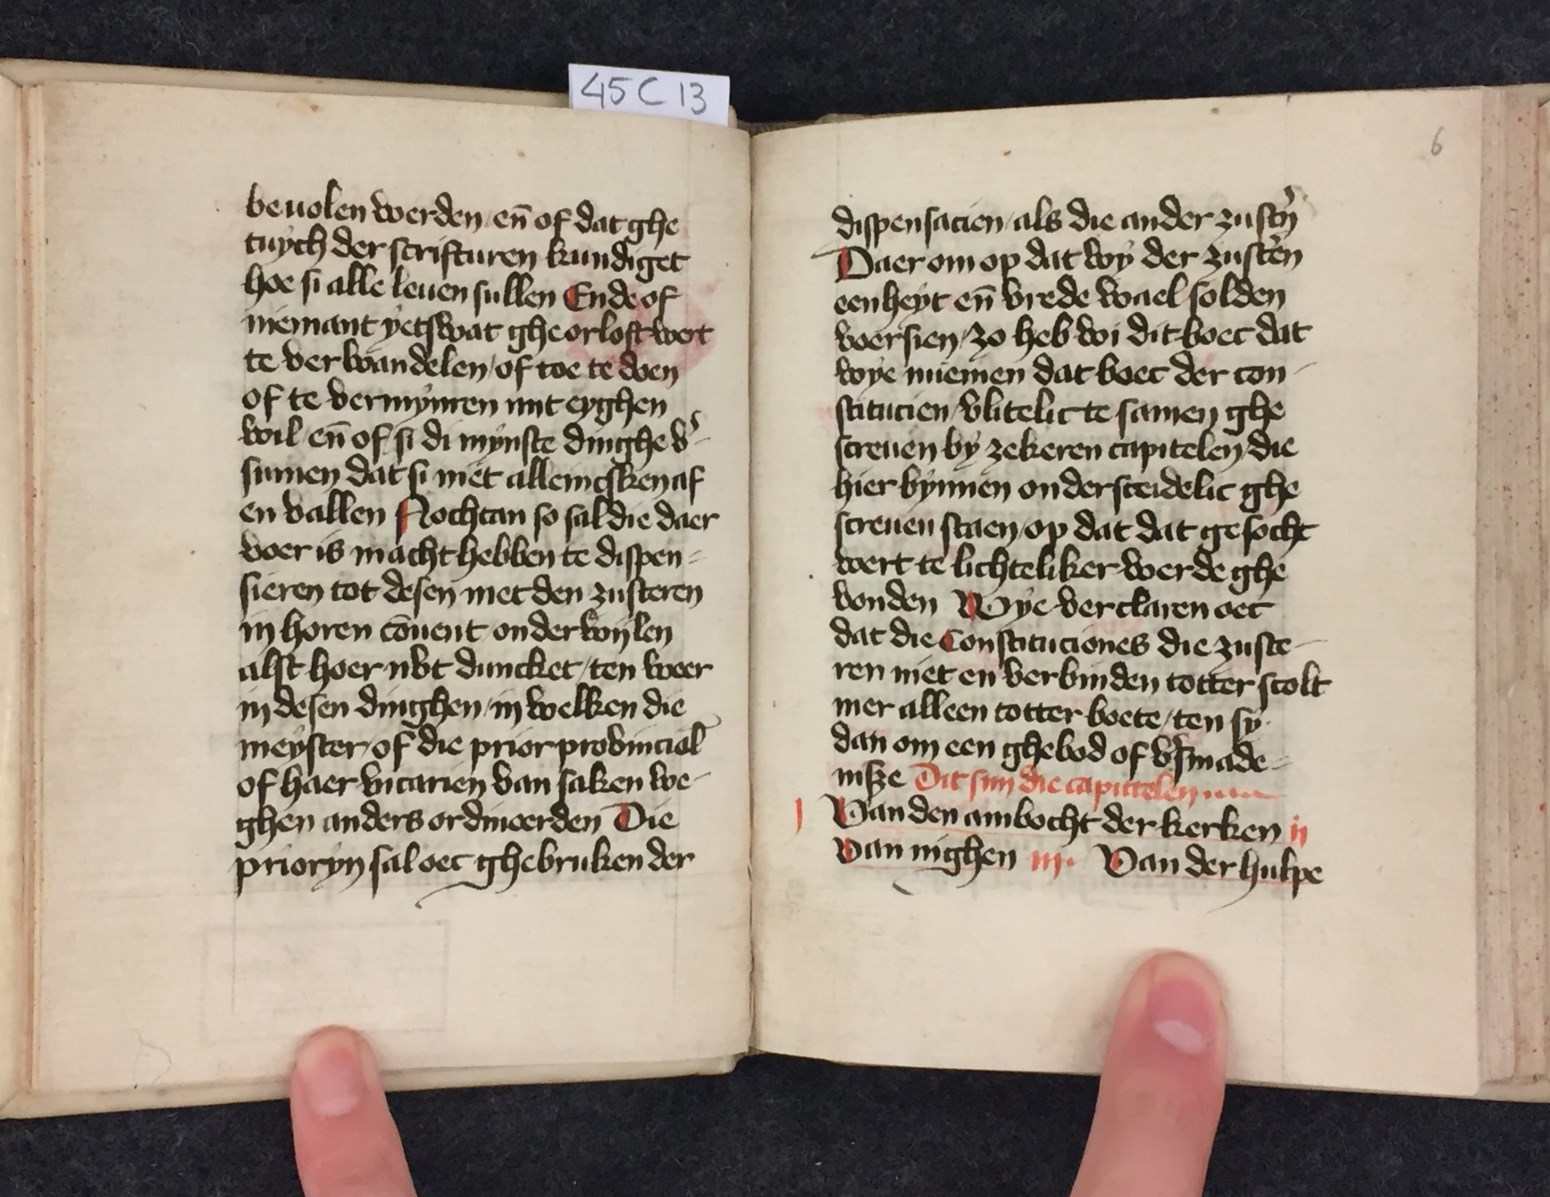 45 C 13
beuolen werden / en̄ of dat ghe
tuych der scrifturen kundiget
hoe si alle leuen sullen Ende of
niemant yetswat gheorloft wert
te verwandelen / of toe te doen
of te vermynren mit eyghen
wil / en̄ of si di mynste dinghe v̉-
sumen dat si niet allenicsken af
en vallen Nochtan so sal die daer
voer is macht hebben te dispen-
sieren tot desen met den zusteren
in horen cōuent onderwylen
alst hoer nvt duncket / ten weer
in desen dinghen / in welken die
meyster / of die prior provincial
of haer vicarien van saken we-
ghen anders ordineerden Die
prioryn sal oec ghebruken der
6
dispensacien / als die ander zust̉n
Daer om op dat wy der zust̉en
eenheyt en̄ vrede wael solden
voersien / zo heb wi dit boec dat
wye nuemen dat boec der con-
stitucien / vlitelic te samen ghe
screuen by zekeren capitelen / die
hier bynnen onderscheidelic ghe
screuen staen / op dat dat gesocht
wert te lichteliker werde ghe
vonden Wye verclaren oec
dat die Constituciones die zuste-
ren niet en verbinden totter scolt
mer alleen totter boete / ten sy
dan om een ghebod of v̉smade-
nisze Dit sijn die capittelen
j Van den ambocht der kerken ij
van nighen iij. Van der hulpe